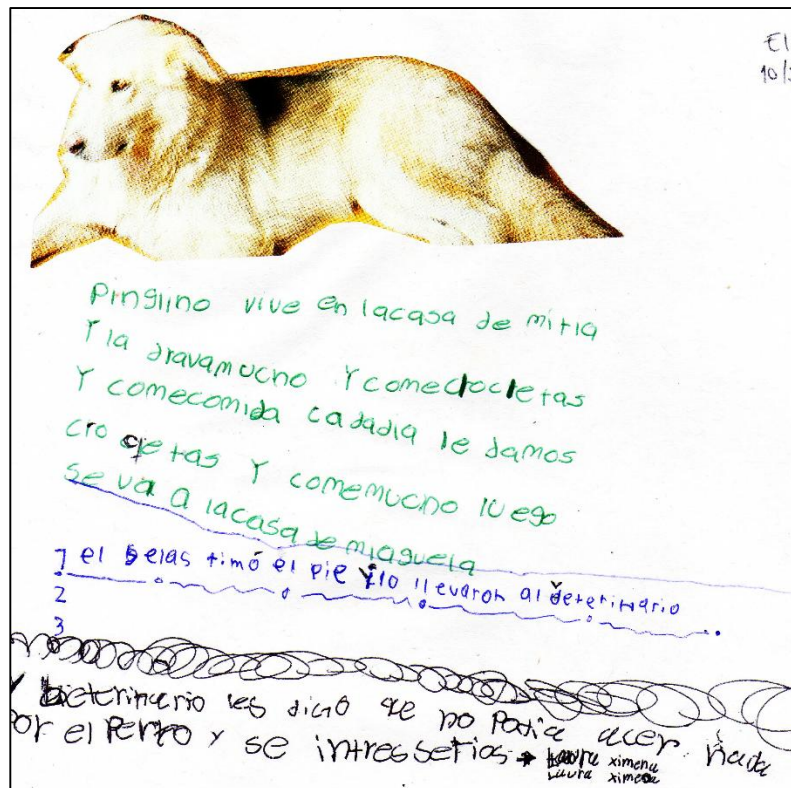 El
10/
pinguino vive en lacasa de mi tia
Y la dravamucho Y comecrocletas
Y comecomida cadadia le damos
cro qetas Y comemucho luego
se va a lacasa de miaguela
1 el se las timó el pie Y lo llevaron al veterinario
2
3
Y beterinario les dicio qe no Podia acer nada
Por el Perro Y se intresserios → Laura ximena
Laura ximena